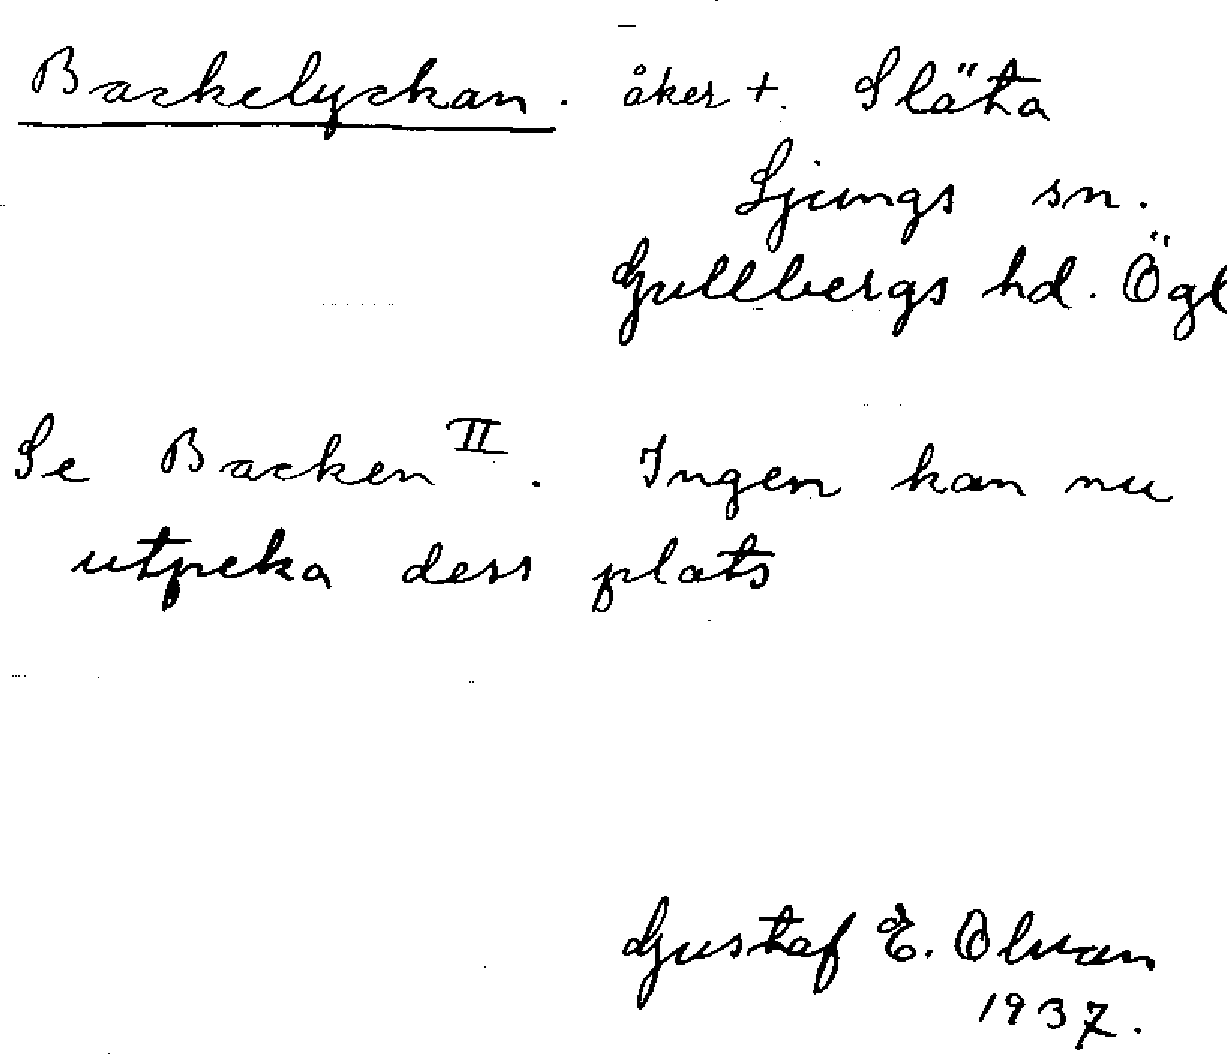 Backelyckan. åker +. Släta
Ljungs sn.
Gullbergs hd. Ögl
Se Backen II. Ingen kan nu
utpeka dess plats
Gustaf E. Olsson
1937.